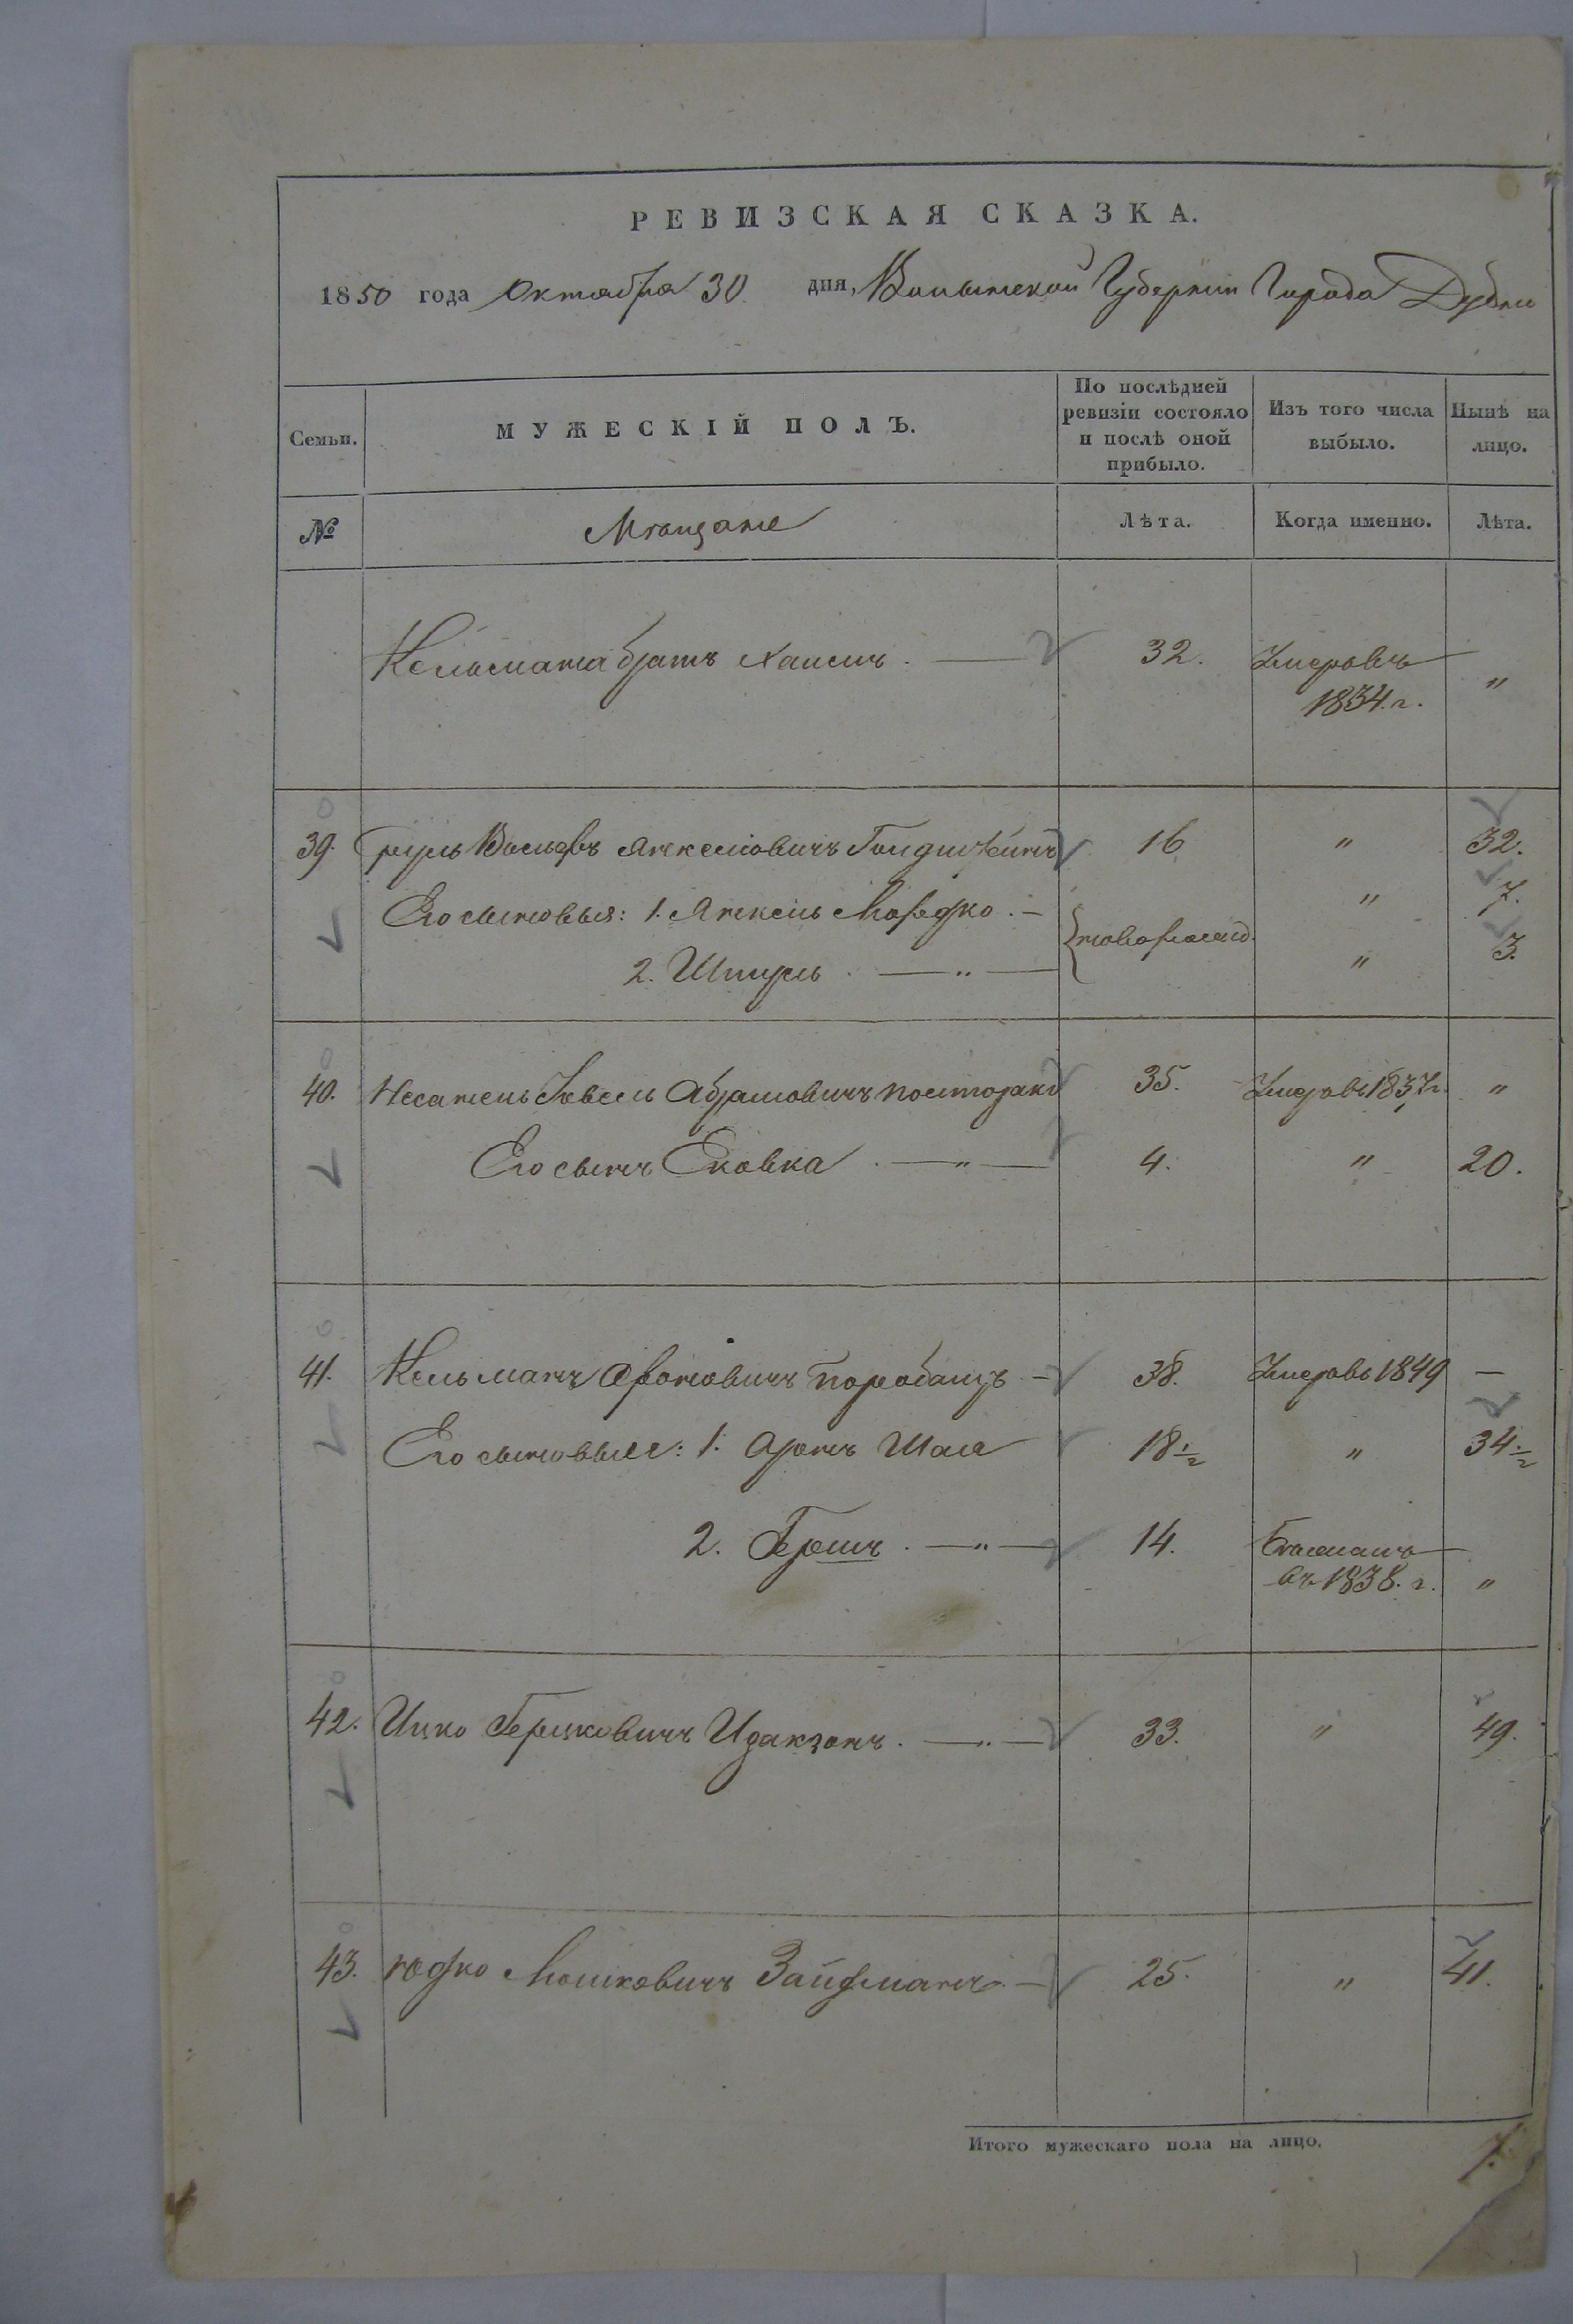 РЕВИЗСКАЯ СКАЗКА.
1850 года Октября 30 дня, Волынской Губернии Города Дубно
Семьи. МУЖЕСКІЙ ПОЛЪ. По послѣдней ревизіи состояло и послѣ оной прибыло. Изъ того числа выбыло. Нынѣ на лицо.
№ Мѣщане Лѣта. Когда именно. Лѣта.
Кельмана братъ Хаимъ. 32. Умеръ въ 1834. г. "
39. Сруль Вольфъ Янкелiовичъ 16 " 32.
Его сыновья: 1. Янкель Мордко. " 7.
новорожд.
2. Шмуль " " 3.
40. Абрамовичъ 35. Умеръ въ 1837 г. "
Его сынъ " 4. " 20.
41. Кельманъ Ароновичъ 38. Умеръ въ 1849 —
Его сыновья: 1. Аронъ Шая 18½ " 34.½
2. Гершъ. " 14. въ 1838. г. "
42. Ицко Гершковичъ Идакзонъ. " 33. " 49.
43. Юдко Мошковичъ Зайдманъ. 25. " 41.
Итого мужескаго пола на лицо. 7.